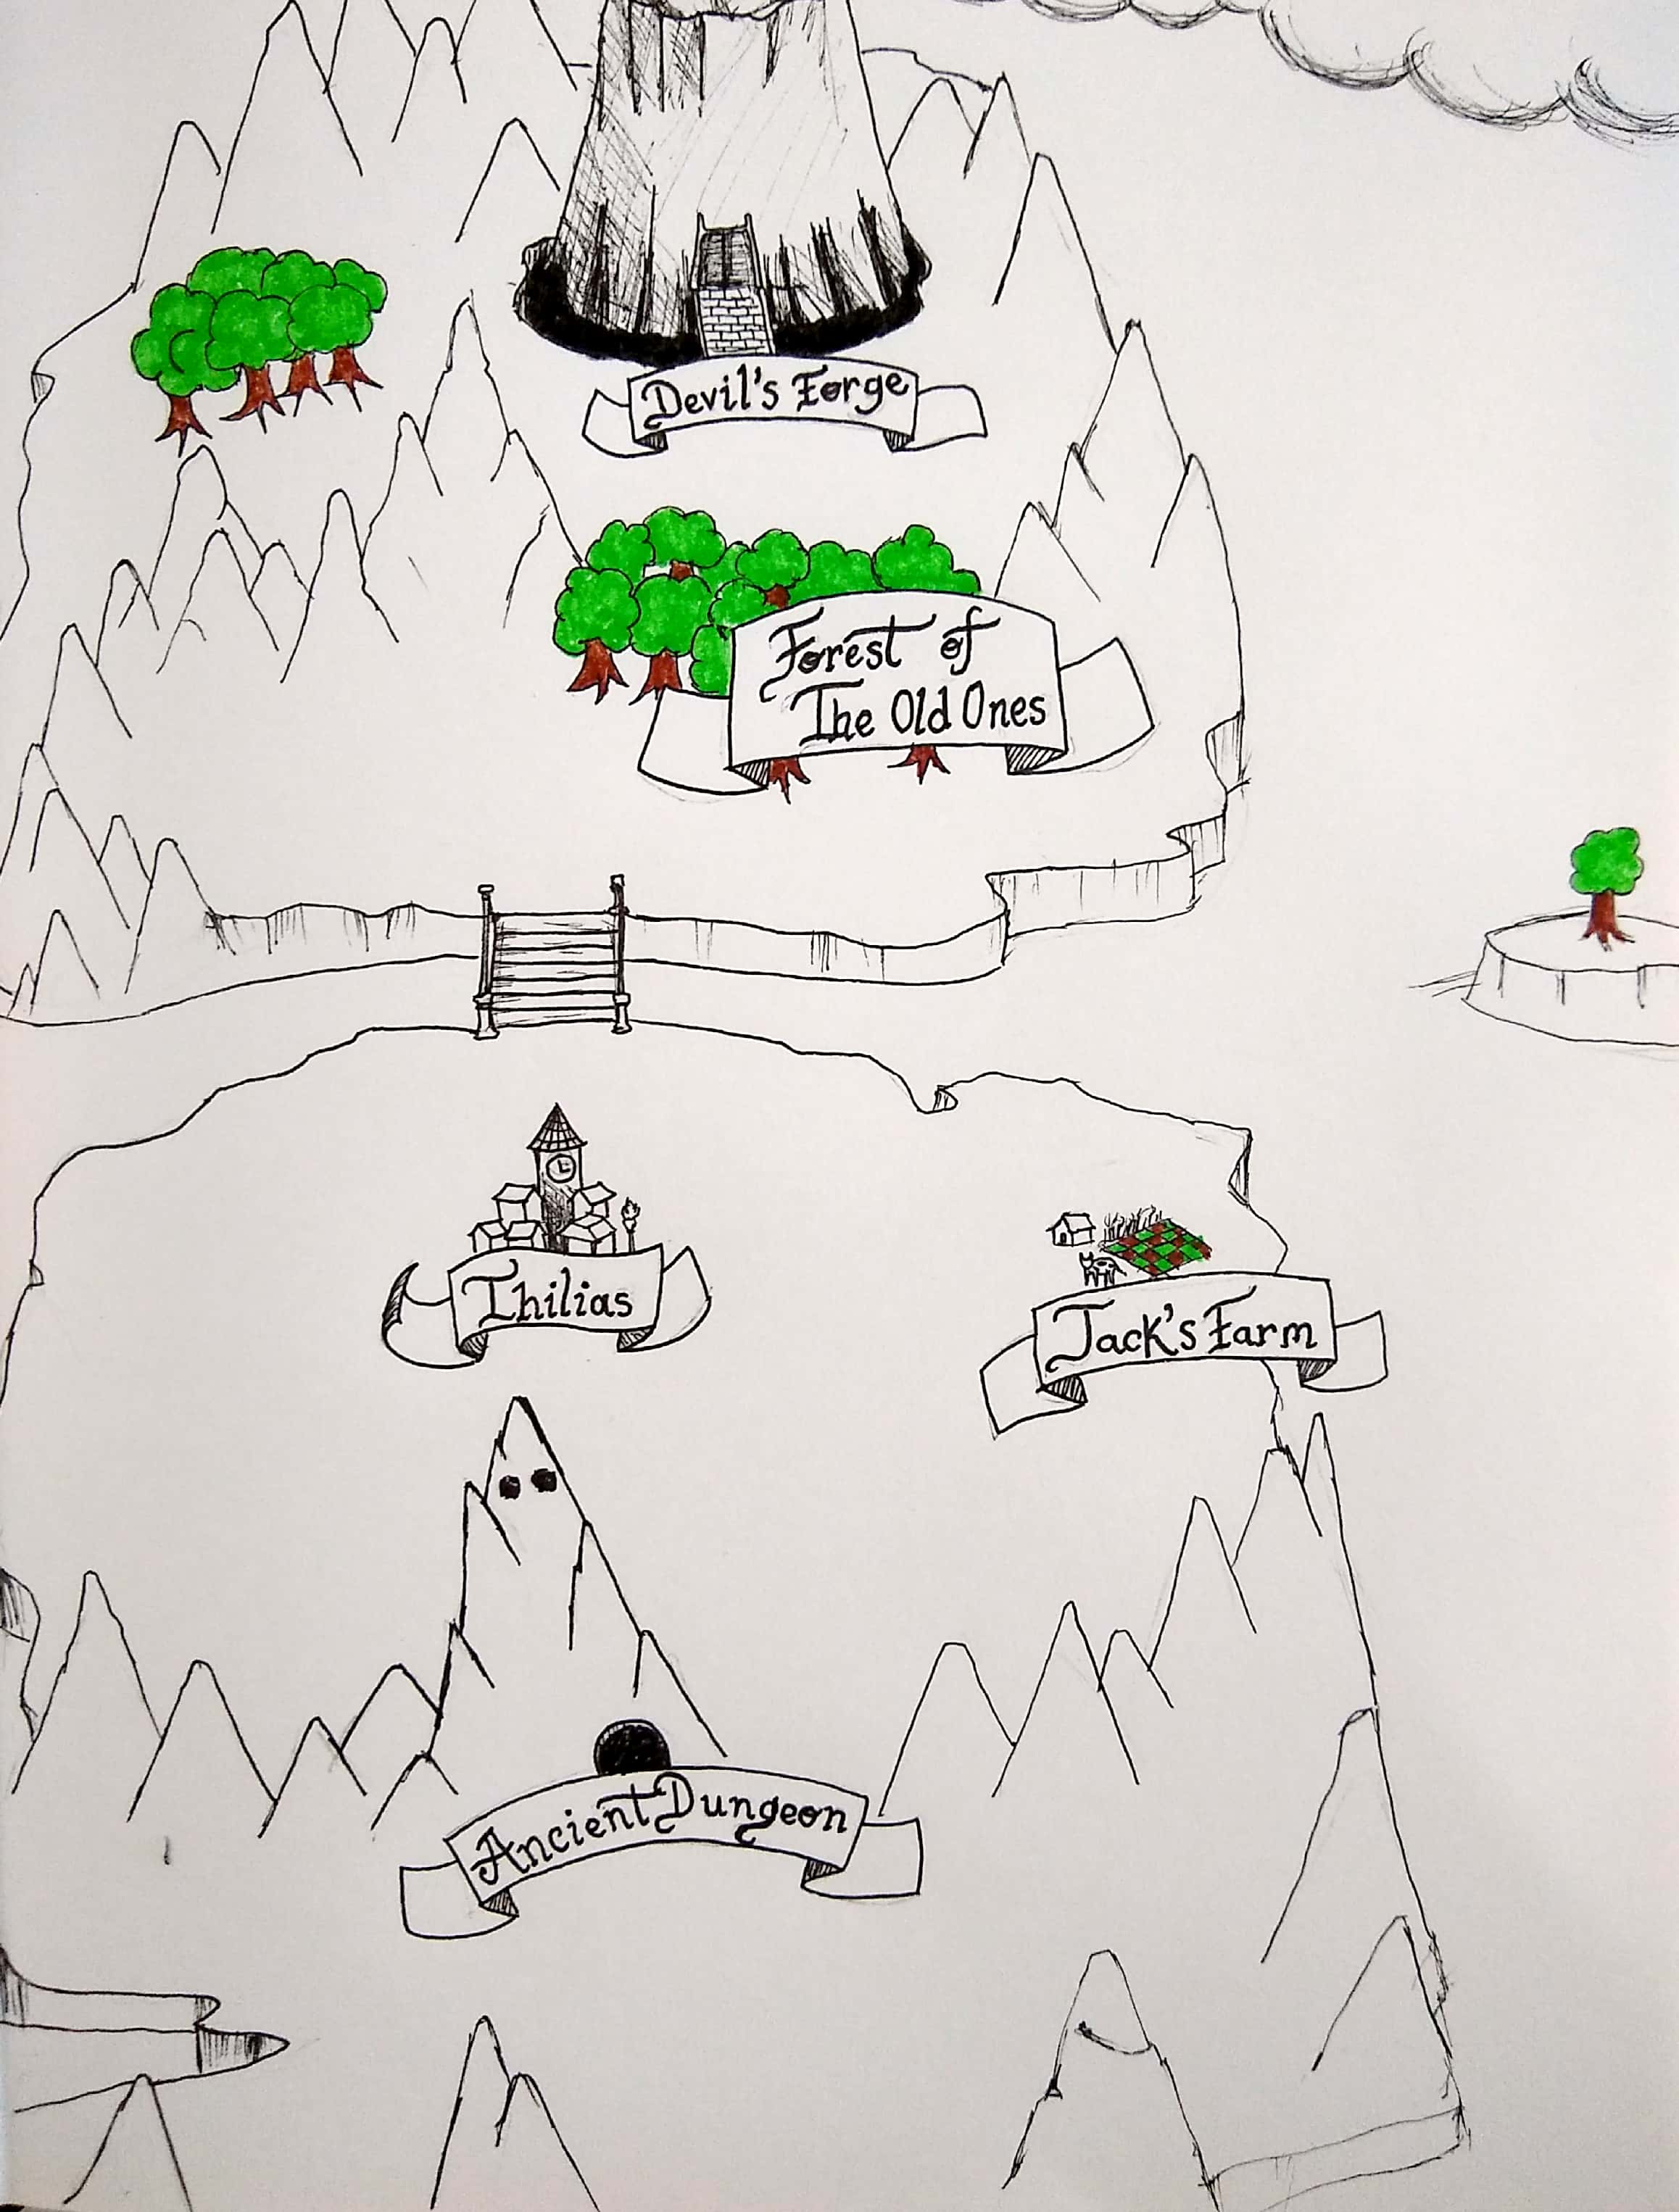 Devil's Forge
Forest of
The Old Ones
Thilias
Jack's Farm
Ancient Dungeon